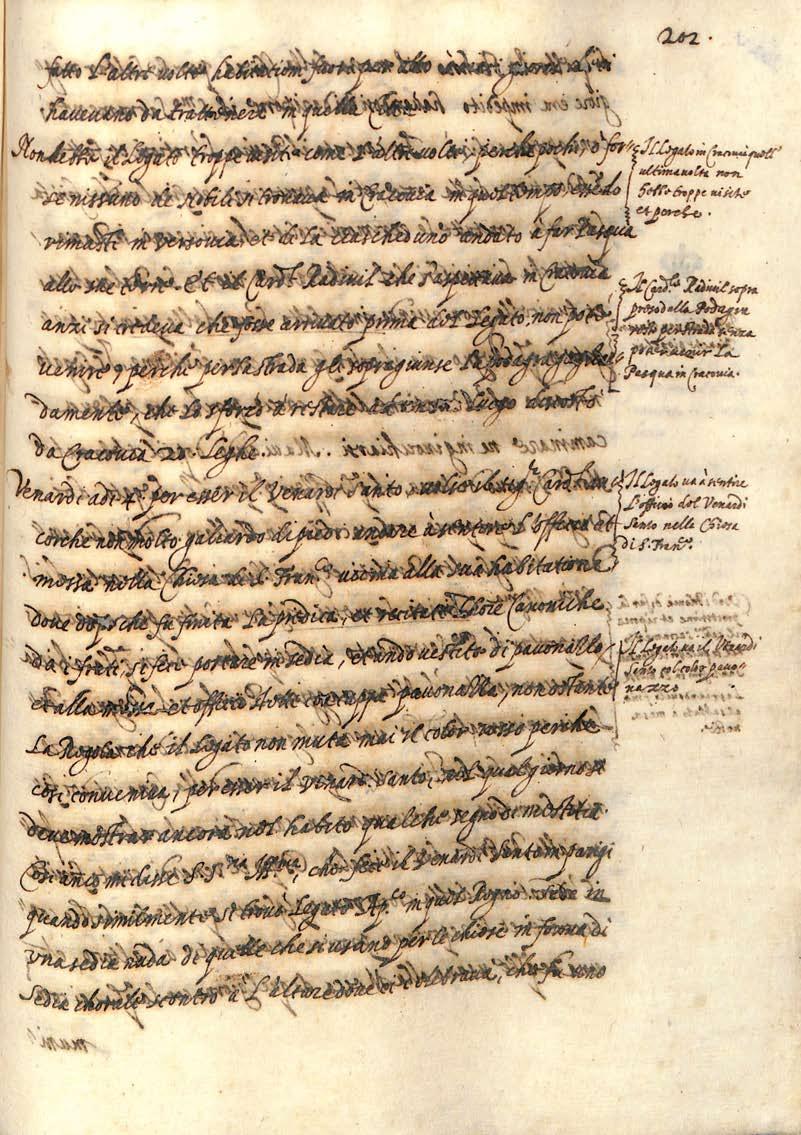 202.
fatto l'altre volte habitation fuori
havevano da trattenere in quella
Non hebbe il Legato troppe visite come l'altre volte, perche pochi, ò for
se nissuno de Nobili si trovava in Cracovia in quel tempo, essendo
rimasti in Versovia, et di là ciascheduno andato à far Pasqua
alle sue Terre. Et il Card.l Radivil che s'aspettava in Cracovia
anzi si credeva che fosse arrivato prima del Legato, non pote
venire, perche per la strada gli sopragiunse la Podagra
damente, che lo sforzò à restare ad un suo luogo discosto
da Cracovia 20. Leghe.
Venardi adi 4. per esser il Venardi Santo, volse il Sig.r Card.l an
corche non molto galiardo di piedi andare à sentire l'officio et
messa nella Chiesa di S. Fran.co vicina alla sua habitatione
dove dopo che fu finita la predica, et recitate l'hore Canoniche
da i frati, si fece portare in sedia, et andò vestito di pavonazzo
et alla messa et officio stette con cappa pavonazza, non ostante
la Regola che il Legato non muta mai il color rosso perche
così conveniva, per esser il Venardi Santo, nel qual giorno si
deve mostrar ancora nel habito qualche segno di mestitia.
Così anco mi disse S. S.ria Ill.ma, che fece il Venardi Santo in Parigi
quando similmente si trovò Legato Ap.co in quel Regno. Sede in
una sedia nuda di quelle che si usano per le chiese in forma di
sedia chorale scontro à l'altare dove si celebrava, che fu uno
Il Legato in Cracovia quell'
ultima volta non
hebbe troppe visite
et perche.
Il Card.le Radivil sopra
preso dalla Podagra
resta per strada senza
poter venir la
Pasqua in Cracovia.
Il Legato va à sentire
l'officio del Venardi
Santo nella Chiesa
di S. Fran.co
Il Legato va il Venardi
Santo col color pavo-
nazzo